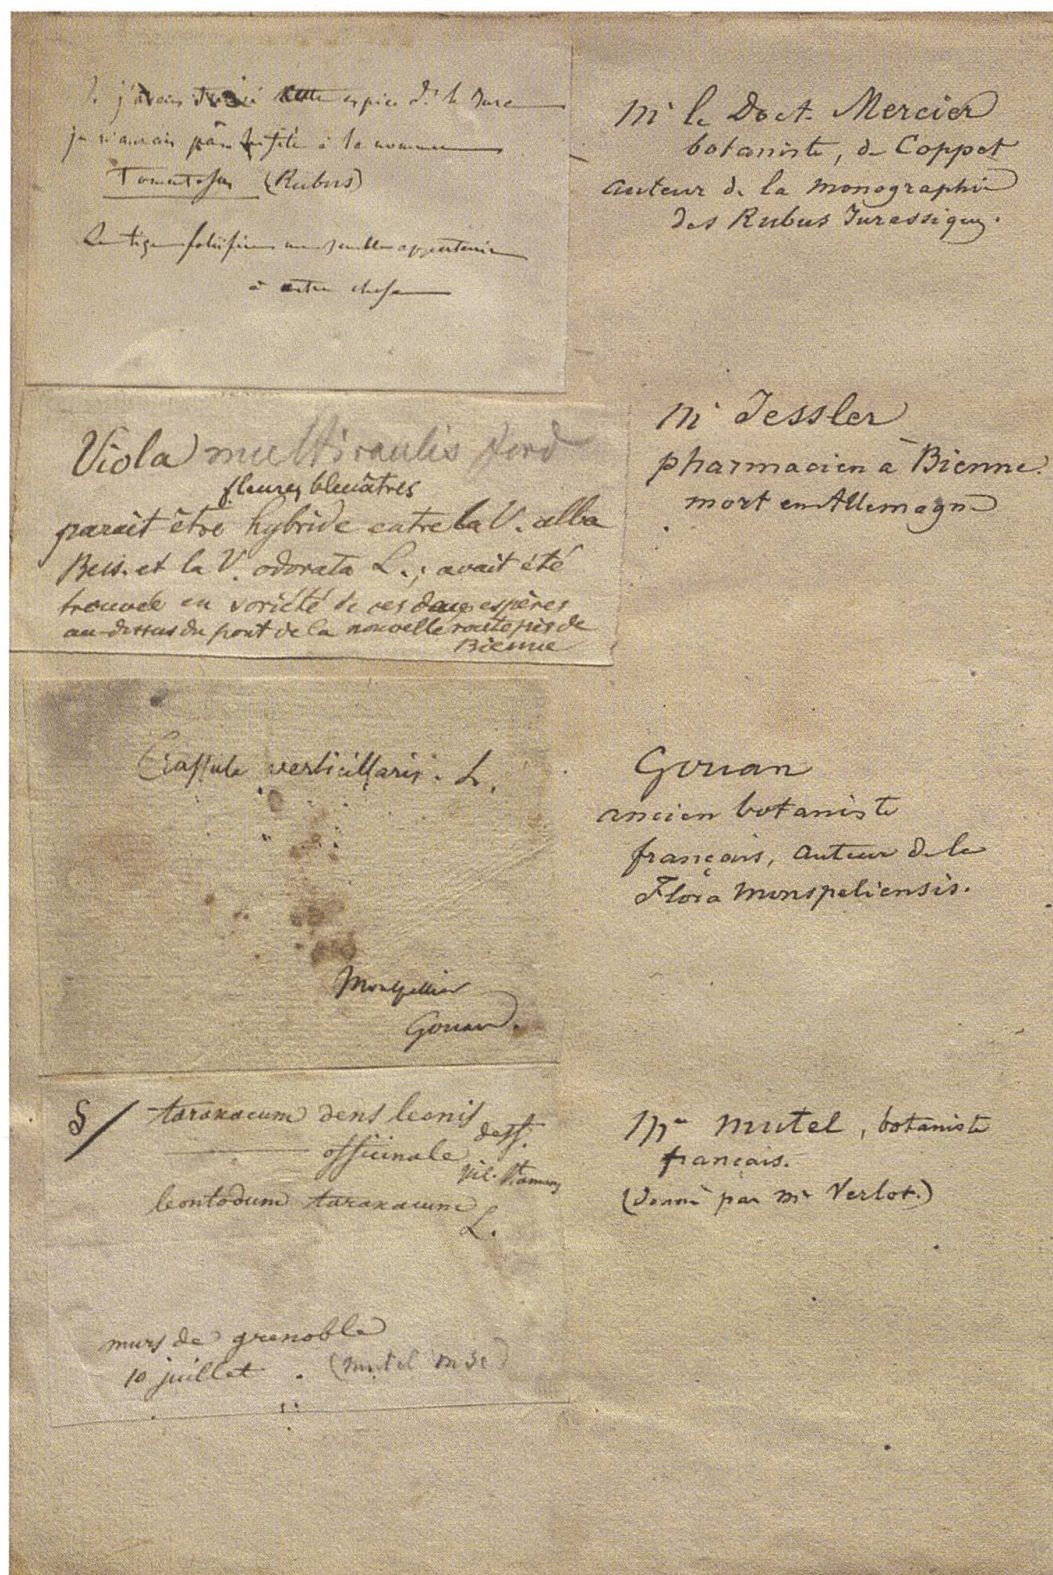 Si j'avais trouvé cette espèce ds le Jura
je n'aurais pas hésité à la nommer
Tomentosus (Rubus)
La tige foliifère me semble appartenir
à autre chose
Mr le Doct. Mercier
botaniste, de Coppet
auteur de la monographie
des Rubus Jurassiques.
Viola multicaulis Jord
fleures bleuâtres
parait être hybride entre la V. alba
Bess. et la V. odorata L.; avait été
trouvée en voriété de ces deux espères
au-dessus du pont de la nouvelle route près de
Bienne
Mr Tessler
pharmacien à Bienne.
mort en Allemagne
Crassula verticillaris. L.
Montpellier
Gouan.
Gouan
ancien botaniste
français, auteur de la
Flora Monspeliensis.
§/ taraxacum dens leonis desf.
officinale vil.
leontodum taraxacum
L.
murs de grenoble
10 juillet. (mutel
Mr Mutel, botaniste
français.
(Donné par Mr Verlot.)